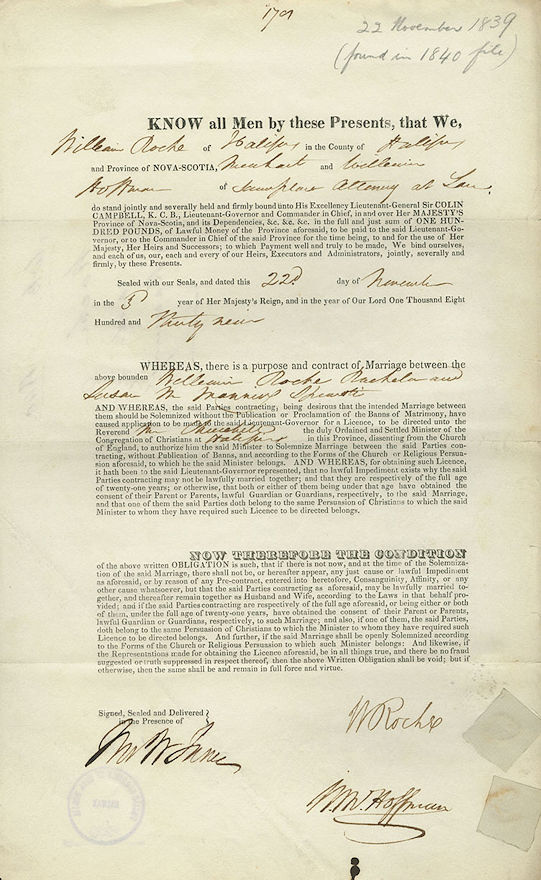 1701
22 November 1839
(found in 1840 file)
KNOW all Men by these Presents, that We,
William Roche of Halifax in the County of Halifax
and Province of NOVA-SCOTIA, Merchant and William
Hoffman of same place Attorney at Law,
do stand jointly and severally held and firmly bound unto His Excellency Lieutenant-General Sir COLIN
CAMPBELL, K. C. B., Lieutenant-Governor and Commander in Chief, in and over Her MAJESTY'S
Province of Nova-Scotia, and its Dependencies, &c. &c. &c. in the full and just sum of ONE HUN-
DRED POUNDS, of Lawful Money of the Province aforesaid, to be paid to the said Lieutenant-Go-
vernor, or to the Commander in Chief of the said Province for the time being, to and for the use of Her
Majesty, Her Heirs and Successors; to which Payment well and truly to be made, We bind ourselves,
and each of us, our, each and every of our Heirs, Executors and Administrators, jointly, severally and
firmly, by these Presents.
Sealed with our Seals, and dated this 22d day of November
in the 3 year of Her Majesty's Reign, and in the year of Our Lord One Thousand Eight
Hundred and Thirty nine
WHEREAS, there is a purpose and contract of Marriage between the
above bounden William Roche Bachelor and
Susan M Spinster
AND WHEREAS, the said Parties contracting, being desirous that the intended Marriage between
them should be Solemnized without the Publication or Proclamation of the Banns of Matrimony, have
caused application to be made to the said Lieutenant-Governor for a Licence, to be directed unto the
Reverend Mr the duly Ordained and Settled Minister of the
Congregation of Christians at Halifax in this Province, dissenting from the Church
of England, to authorize him the said Minister to Solemnize Marriage between the said Parties con-
tracting, without Publication of Banns, and according to the Forms of the Church or Religious Persua-
sion aforesaid, to which he the said Minister belongs. AND WHEREAS, for obtaining such Licence,
it hath been to the said Lieutenant-Governor represented, that no lawful Impediment exists why the said
Parties contracting may not be lawfully married together; and that they are respectively of the full age
of twenty-one years; or otherwise, that both or either of them being under that age have obtained the
consent of their Parent or Parents, lawful Guardian or Guardians, respectively, to the said Marriage,
and that one of them the said Parties doth belong to the same Persuasion of Christians to which the said
Minister to whom they have required such Licence to be directed belongs.
NOW THEREFORE THE CONDITION
of the above written OBLIGATION is such, that if there is not now, and at the time of the Solemniza-
tion of the said Marriage, there shall not be, or hereafter appear, any just cause or lawful Impediment
as aforesaid, or by reason of any Pre-contract, entered into heretofore, Consanguinity, Affinity, or any
other cause whatsoever, but that the said Parties contracting as aforesaid, may be lawfully married to-
gether, and thereafter remain together as Husband and Wife, according to the Laws in that behalf pro-
vided; and if the said Parties contracting are respectively of the full age aforesaid, or being either or both
of them, under the full age of twenty-one years, have obtained the consent of their Parent or Parents,
lawful Guardian or Guardians, respectively, to such Marriage; and also, if one of them, the said Parties,
doth belong to the same Persuasion of Christians to which the Minister to whom they have required such
Licence to be directed belongs. And further, if the said Marriage shall be openly Solemnized according
to the Forms of the Church or Religious Persuasion to which such Minister belongs: And likewise, if
the Representations made for obtaining the Licence aforesaid, be in all things true, and there be no fraud
suggested or truth suppressed in respect thereof, then the above Written Obligation shall be void; but if
otherwise, then the same shall be and remain in full force and virtue.
Signed, Sealed and Delivered
in the Presence of
W Roche
Wm. Hoffman